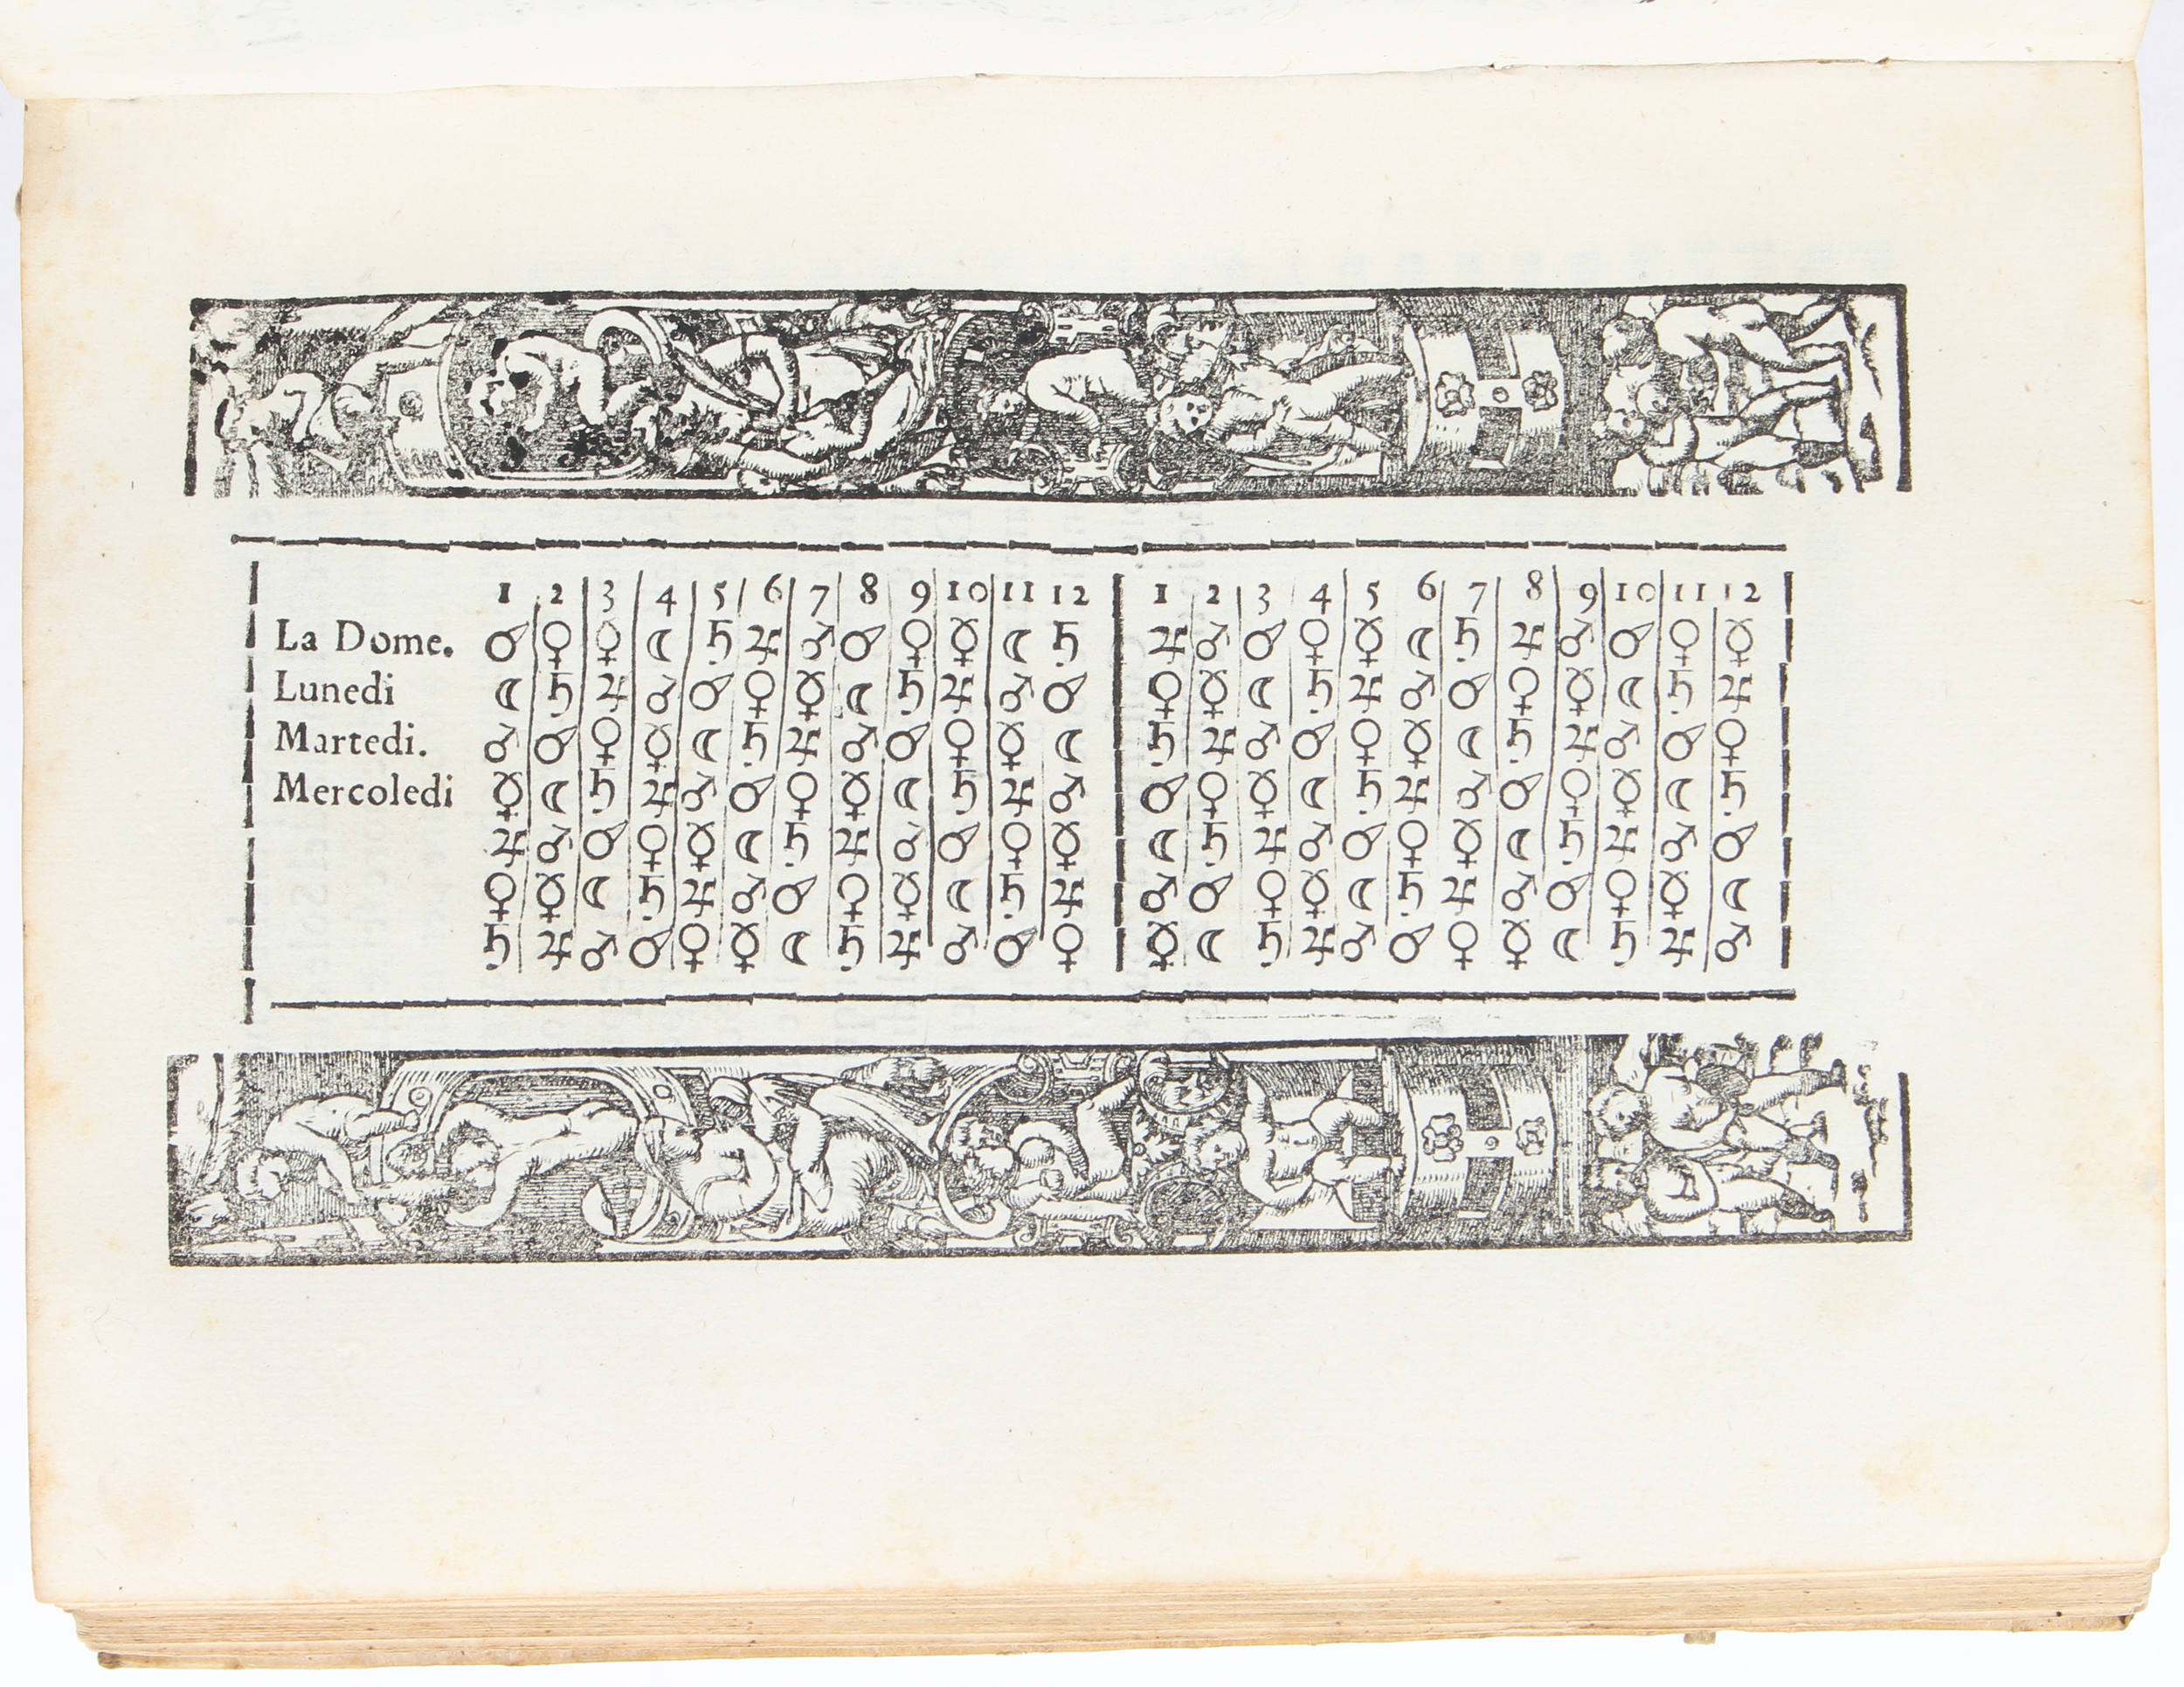 1 2 3 4 5 6 7 8 9 10 11 12 1 2 3 4 5 6 7 8 9 10 11 12
La Dome. ☉ ♀ ☿ ☾ ♄ ♃ ♂ ☉ ♀ ☿ ☾ ♄ ♃ ♂ ☉ ♀ ☿ ☾ ♄ ♃ ♂ ☉ ♀ ☿
Lunedi ☾ ♄ ♃ ♂ ☉ ♀ ☿ ☾ ♄ ♃ ♂ ☉ ♀ ☿ ☾ ♄ ♃ ♂ ☉ ♀ ☿ ☾ ♄ ♃
Martedi. ♂ ☉ ♀ ☿ ☾ ♄ ♃ ♂ ☉ ♀ ☿ ☾ ♄ ♃ ♂ ☉ ♀ ☿ ☾ ♄ ♃ ♂ ☉ ♀
Mercoledi ☿ ☾ ♄ ♃ ♂ ☉ ♀ ☿ ☾ ♄ ♃ ♂ ☉ ♀ ☿ ☾ ♄ ♃ ♂ ☉ ♀ ☿ ☾ ♄
♃ ♂ ☉ ♀ ☿ ☾ ♄ ♃ ♂ ☉ ♀ ☿ ☾ ♄ ♃ ♂ ☉ ♀ ☿ ☾ ♄ ♃ ♂ ☉
♀ ☿ ☾ ♄ ♃ ♂ ☉ ♀ ☿ ☾ ♄ ♃ ♂ ☉ ♀ ☿ ☾ ♄ ♃ ♂ ☉ ♀ ☿ ☾
♄ ♃ ♂ ☉ ♀ ☿ ☾ ♄ ♃ ♂ ☉ ♀ ☿ ☾ ♄ ♃ ♂ ☉ ♀ ☿ ☾ ♄ ♃ ♂